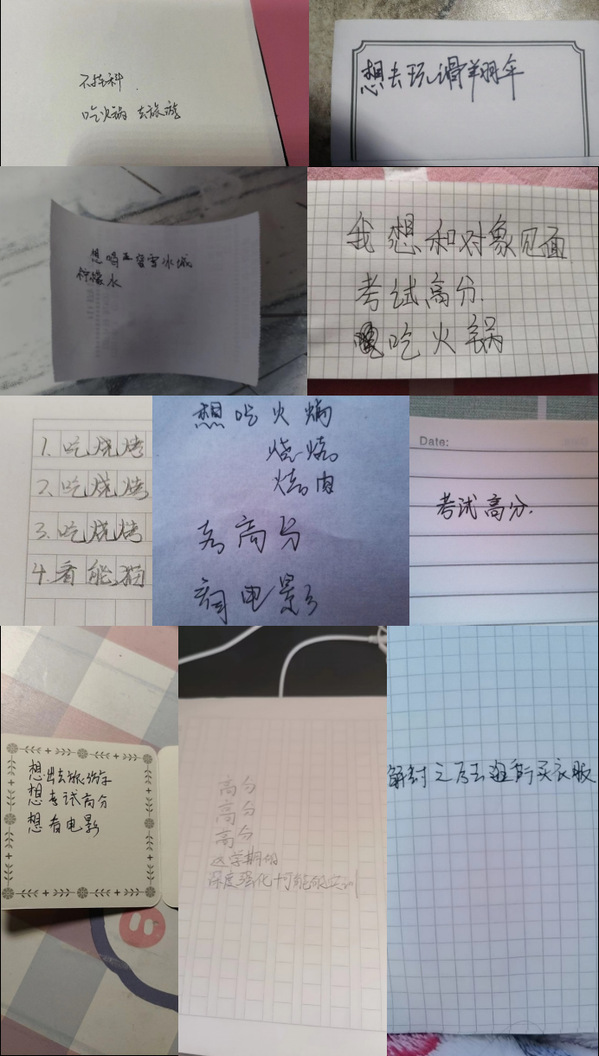 不挂科.
吃火锅 去旅游
想去玩滑翔伞
想喝蜜雪冰城
柠檬水
我想和对象见面
考试高分.
吃火锅
1.吃烧烤
2.吃烧烤
3.吃烧烤
4.看能猫
想吃火锅
烧烤
烤肉
考高分
看电影
Date:
考试高分.
想出去旅游
想考试高分
想看电影
高分
高分
高分
这学期的
深度强化
解封之后去逛街买衣服